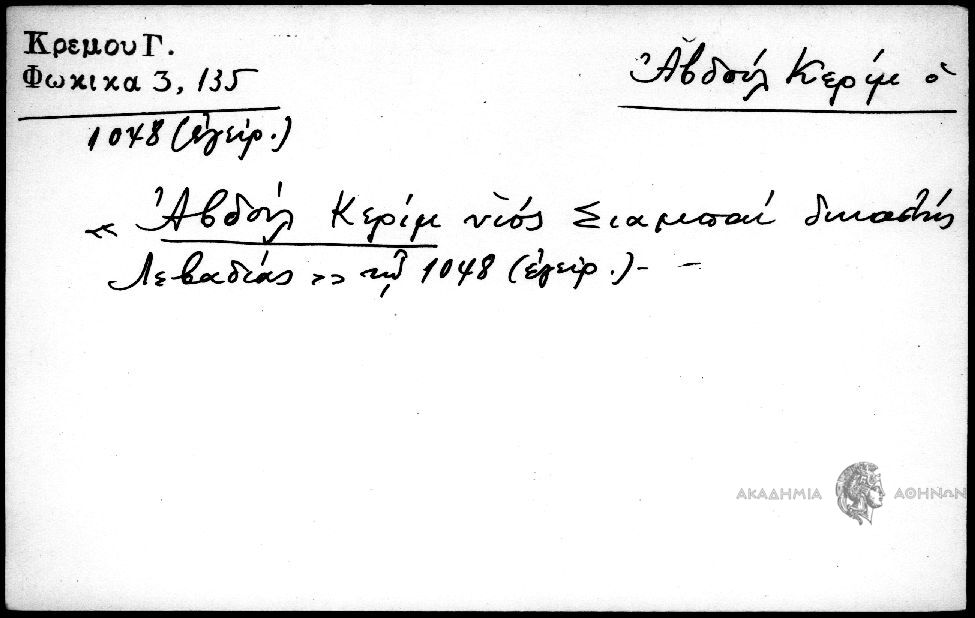 Κρεμου Γ.
Φωκικα 3, 135
Ἀβδούλ Κερίμ ὁ
1048 (ἐγείρ.)
« Ἀβδούλ Κερίμ υἱός Σιαμπαί δικαστής
Λεβαδίας » τῷ 1048 (ἐγείρ.) - -
ΑΚΑΔΗΜΙΑ ΑΘΗΝΩΝ